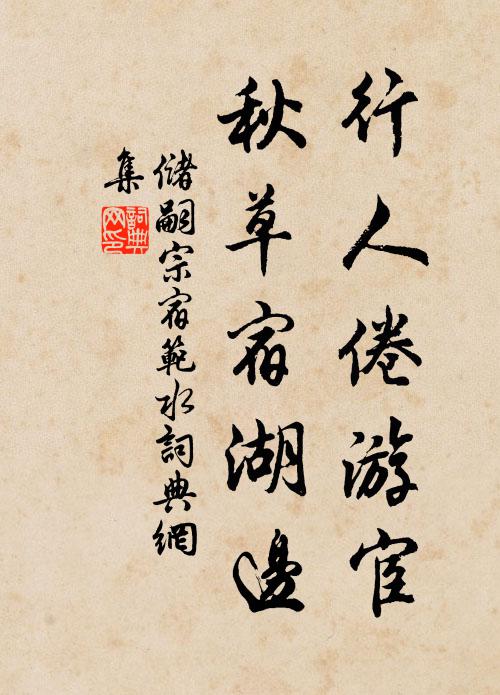 行人倦游宦
秋草宿湖邊
儲嗣宗宿範水詞典網
集
詞典
网印